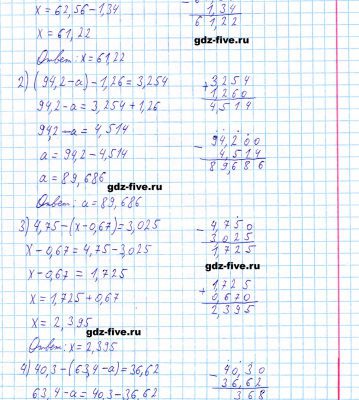 x = 62,56 - 1,34
x = 61,22
1,34
61,22
gdz-five.ru
Ответ: x = 61,22
2) (94,2 - a) - 1,26 = 3,254
94,2 - a = 3,254 + 1,26
94,2 - a = 4,514
a = 94,2 - 4,514
a = 89,686
+ 3,254
1,260
4,514
- 94,200
4,514
89,686
gdz-five.ru
Ответ: a = 89,686
3) 4,75 - (x - 0,67) = 3,025
x - 0,67 = 4,75 - 3,025
x - 0,67 = 1,725
x = 1,725 + 0,67
x = 2,395
- 4,750
3,025
1,725
gdz-five.ru
+ 1,725
0,670
2,395
gdz-five.ru
Ответ: x = 2,395
4) 40,3 - (63,4 - a) = 36,62
63,4 - a = 40,3 - 36,62
- 40,30
36,62
3,68